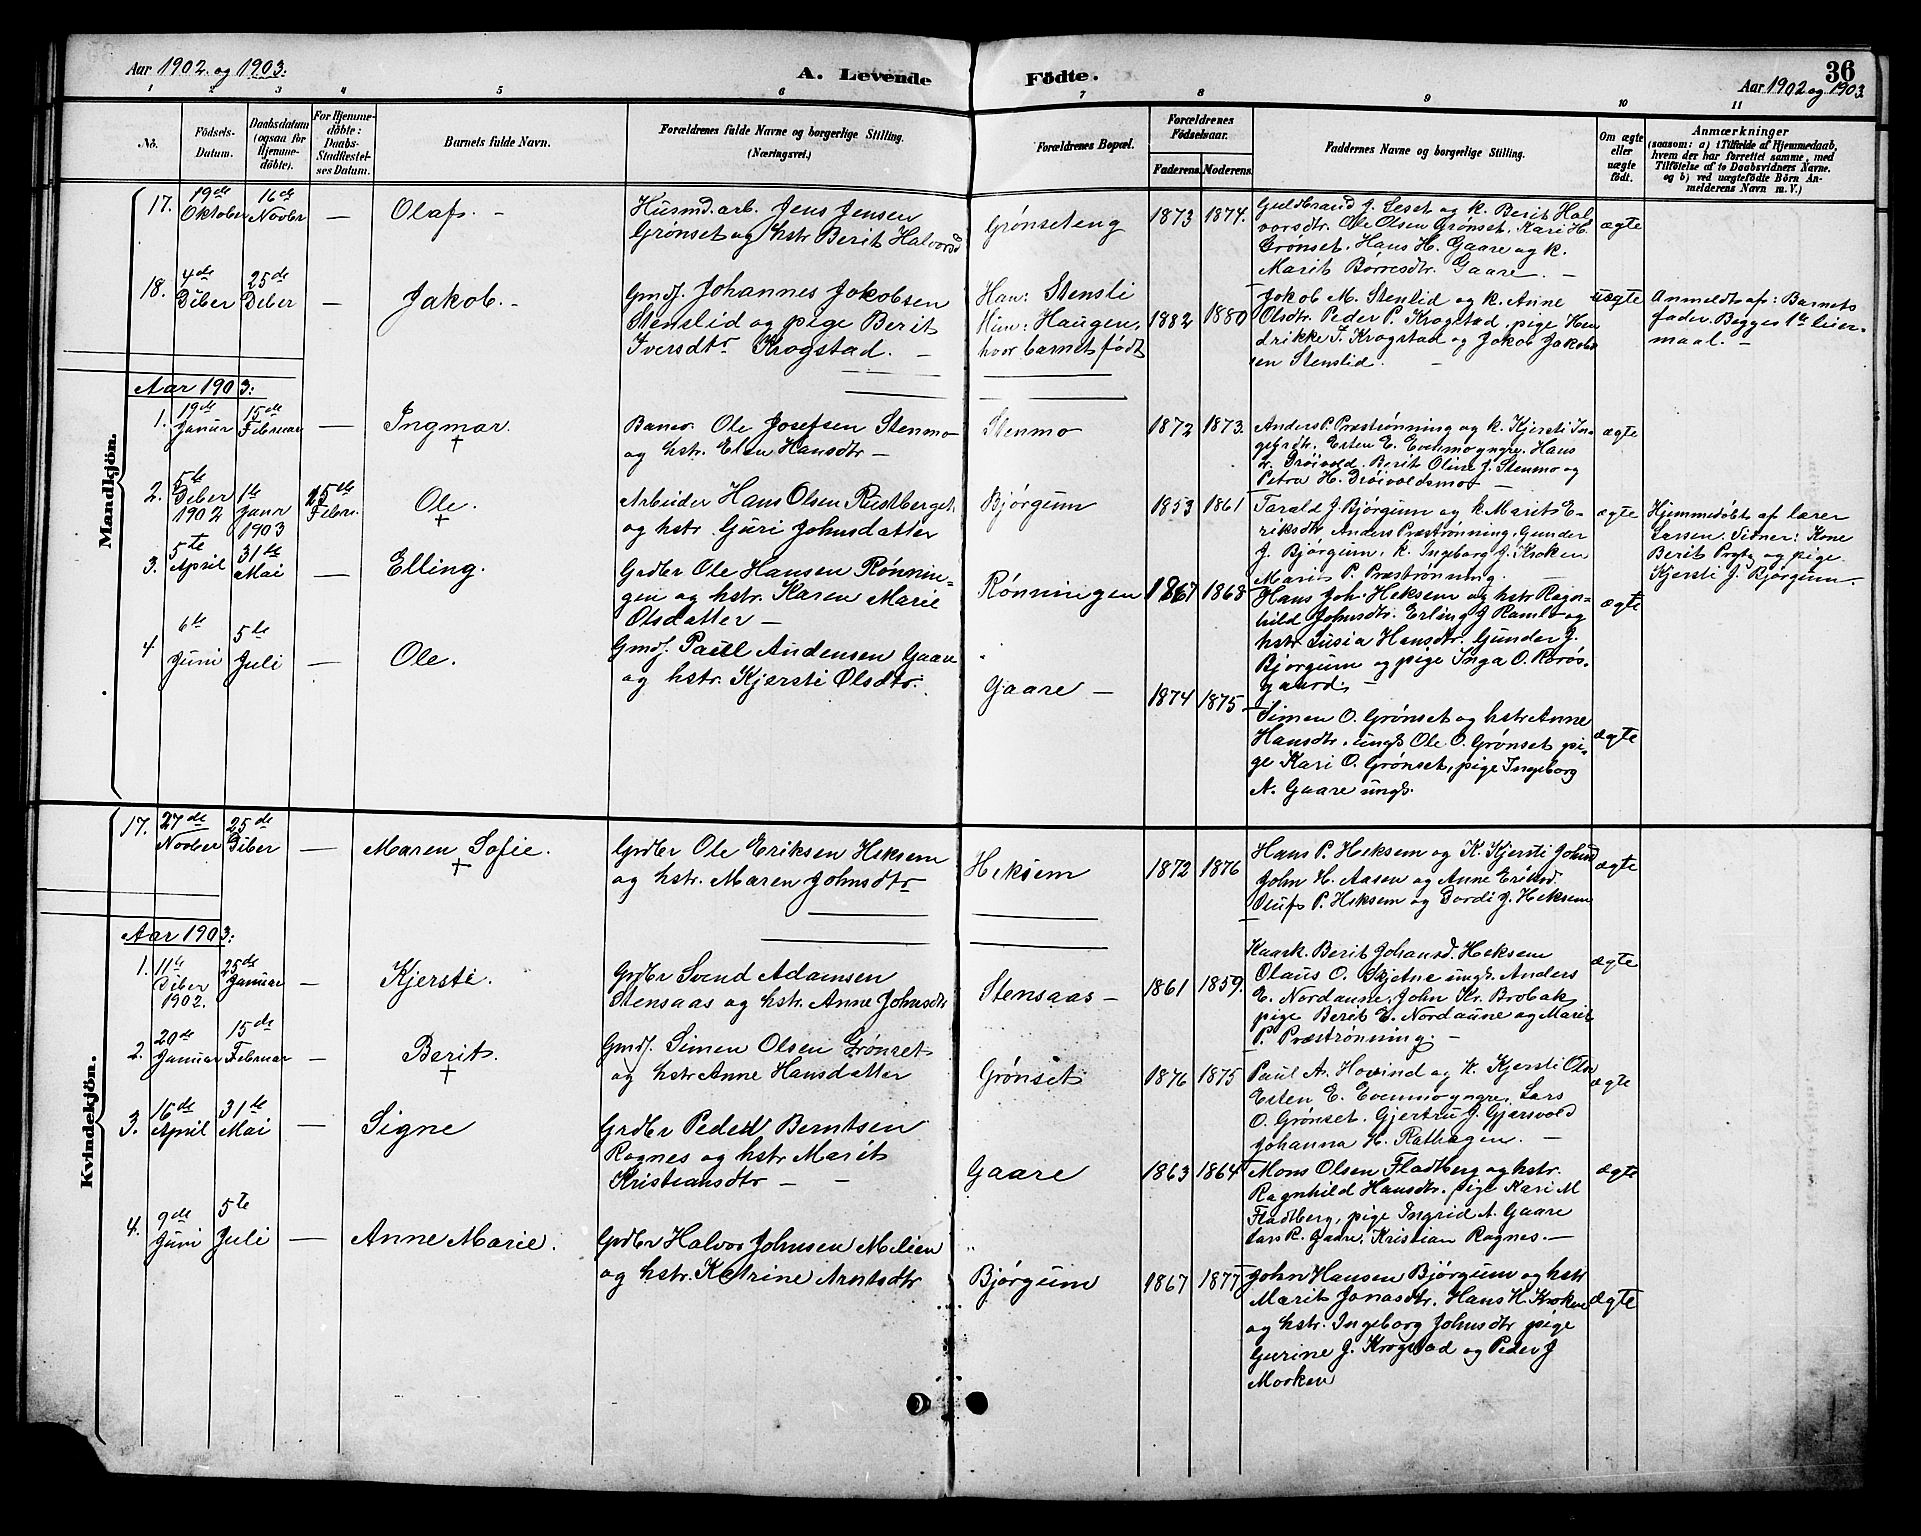 Aar 1902. og 1903:
A. Levende
Fødte.
36
Aar 1902 og 1903.
1 2 3 4 5 6 7 8 9 10 11
No.
Fødsels-
Datum.
Daabsdatum
(ogsaa for
Hjemme-
døbte).
For Hjemme-
døbte:
Daabs-
Stadfæstel-
ses Datum.
Barnets fulde Navn.
Forældrenes fulde Navne og borgerlige Stilling.
(Næringsvei.)
Forældrenes Bopæl.
Forældrenes
Fødselsaar.
Faderens. Moderens.
Faddernes Navne og borgerlige Stilling.
Om ægte
eller
uægte
født.
Anmærkninger
(saasom: a) i Tilfælde af Hjemmedaab,
hvem der har forrettet samme, med
Tilføielse af to Daabsvidners Navne.
og b) ved uægtefødte Børn An-
melderens Navn m. V.)
Mandkjön.
17.
19de
Oktober
16de
Novbr
—
Olaf. -
Husmd. arb. Jens Jensen
Grønset og hstr Berit Halvorsd
Grønseteng
1873
1874.
Guldbrand J. Seset og k. Berit Hal
vorsdtr. Ole Olsen Grønset. Kari H.
Grønset. Hans H. Gaare og k.
Marit Børresdtr. Gaare. —
ægte
18.
4de
Dcber
25de
Dcber
—
Jakob. -
Gmdf. Johannes Jakobsen
Stenslid og pige Berit
Iversdtr Krogstad. —
Han: Stensli
Hun: Haugen,
hvor barnet født
1882
1880
Jakob M. Stenlid og k. Anne
Olsdtr. Peder P. Krogstad, pige Hen
drikke I. Krogstad og Jakob Jakobs
en Stenslid. -
uægte
Anmeldt af: Barnets
fader. Begges 1te leier-
maal. —
Aar 1903:
1.
19de
Januar
15de
Februar
—
Ingmar.
+
Banev. Ole Josefsen Stenmo
og hstr. Elen Hansdtr —
Stenmo
1872
1873.
Anders P. Præstrønning og k. Kjersti In-
gebrdtr. Esten E. Evenmo yngre. Hans
Berit Oline J. Stenmo og
Petra H. Drøivoldsmo —
ægte
2.
5te
Dcber
1902
1te
Janr
1903
15de
Febr.
Ole.
+
Arbeider Hans Olsen Rustberget
og hstr. Guri Johnsdatter
Bjørgum
1853
1861
Tarald J. Bjørgum og k. Marit E-
riksdtr Anders Præstrønning, Gunder
J. Bjørgum. k. Ingeborg J. Kroken
Marit P. Præstrønning. —
ægte
Hjemmedøbt af lærer
Larsen. Vidner: Kone
Berit Prytz og pige
Kjersti J. Bjørgum —
3.
5te
April
31te
Mai
—
Elling.
Grdbr Ole Hansen Rønnin-
gen og hstr. Karen Marie
Olsdatter —
Rønningen
1867
1868
Hans Joh. Heksem og hstr Ragn-
hild Johnsdtr. Erling J. Ramlo og
hstr. Lusia Hansdtr. Gunder J.
Bjørgum og pige Inga O. Rørøs-
gaard. —
ægte
4
6te
Juni
5te
Juli
—
Ole.
Gmdf. Paul Andersen Gaare
og hstr. Kjersti Olsdtr.
Gaare —
1874
1875
Simen O. Grønset og hstr Anne
Hansdtr. ungk Ole O. Grønset pi-
ge Kari O. Grønset, pige Ingeborg
A. Gaare ungk.
ægte
Kvindekjön.
17.
27de
Novber
25de
Dcber
—
Maren Sofie.
+
Grdbr Ole Eriksen Heksem
og hstr. Maren Johnsdtr
Heksem
1872
1876
Hans P. Heksem og K. Kjersti Johnsd
John H. Aasen og Anne Eriksd.
Oluf P. Heksem og Dordi J. Heksem
ægte
Aar 1903:
1.
11te
Dcber
1902.
25de
Januar
—
Kjersti.
Grdbr Svend Adamsen
Stensaas og hstr. Anne Johnsdtr
Stensaas —
1861
1859.
Kaark. Berit Johansd. Heksem
Olaus O. Skjetne ungk. Anders
E. Nordaune, John Kr. Brobak,
pige Berit E. Nordaune og Marit
P. Præstrønning. —
ægte
2.
20de
Januar
15de
Februar
—
Berit.
+
Gmdf. Simen Olsen Grønset
og hstr Anne Hansdatter
Grønset
1876
1875
Paul A. Hovind og k. Kjersti Olsn
Esten E. Evenmo yngre, Lars
O. Grønset. Gjertru J. Gjarsvold
Johanna H. Rathagen. —
ægte
3.
16de
April
31te
Mai
—
Signe
Grdbr Peder Berntsen
Rognes og hstr Marit
Kristiansdtr — -
Gaare
1863
1864
Mons Olsen Fladberg og hstr.
Ragnhild Hansdtr. pige Kari M
Fladberg, pige Ingrid A. Gaare
Lars P. Gaare. Kristian Rognes. —
ægte
4.
9de
Juni
5te
Juli
—
Anne Marie.
Grdbr Halvor Johnsen Moløen
og hstr. Katrine Arntsdtr
Bjørgum
1867
1877
John Hansen Bjørgum og hstr
Marit Jonasdtr. Hans H. Kroken
og hstr. Ingeborg Johnsdtr pige
Gurine J. Krogstad og Peder J
Morken
ægte